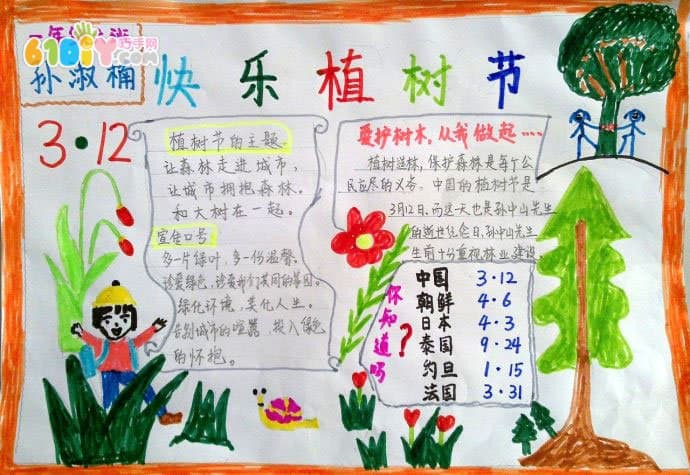 610diy巧手网
孙淑楠
快乐植树节
3·12
植树节的主题
让森林走进城市，
让城市拥抱森林。
和大树在一起。
宣传口号
多一片绿叶，多一份温馨。
珍爱绿色，珍爱我们共同的家园。
绿化环境，美化人生。
告别城市的喧嚣，投入绿色
的怀抱。
爱护树木，从我做起····
植树造林，保护森林是每个公
民应尽的义务。中国的植树节是
3月12日，而这一天也是孙中山先生
的逝世纪念日，孙中山先生
生前十分重视林业建设。
你知道吗？
中国 3·12
朝鲜 4·6
日本 4·3
泰国 9·24
约旦 1·15
法国 3·31